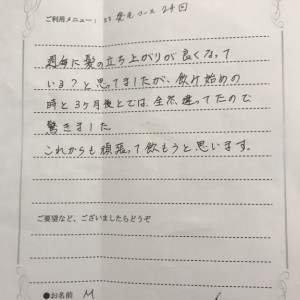 ご利用メニュー: 発毛コース 24回
週毎に髪の立ち上がりが良くなって
いる?と思ってましたが、飲け始めの
時と3ヶ月後とでは、全然違ってたので
驚きました
これからも頑張って飲もうと思います。
ご要望など、ございましたらどうぞ
●お名前 M